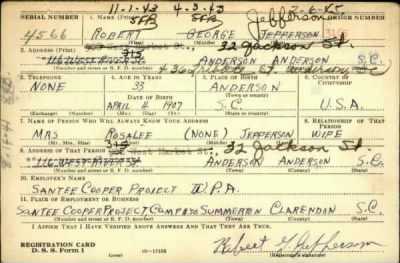 11-1-43 4-3-43 2-6-45
SERIAL NUMBER 1. NAME (Print) SFB SFB Jefferson ORDER NUMBER
4566 ROBERT GEORGE JEPPERSON
(First) (Middle) (Last)
2. ADDRESS (Print) 315 West Market St. 32 Jackson St.
116 WEST RIVER ST ANDERSON ANDERSON S.C.
(Number and street or R. F. D. number) (Town) (County) (State)
3. TELEPHONE 4. AGE IN YEARS 5. PLACE OF BIRTH 6. COUNTRY OF CITIZENSHIP
NONE 33 ANDERSON
DATE OF BIRTH (Town or county)
APRIL 4 1907 S.C. U.S.A.
(Mo.) (Day) (Yr.) (State or country)
7. NAME OF PERSON WHO WILL ALWAYS KNOW YOUR ADDRESS 8. RELATIONSHIP OF THAT PERSON
MRS ROSALEE (NONE) JEPPERSON WIFE
(Mr., Mrs., Miss) (First) (Middle) (Last)
9. ADDRESS OF THAT PERSON 315 West Market St. 32 Jackson St.
116 WEST RIVER ST ANDERSON ANDERSON S.C.
(Number and street or R. F. D. number) (Town) (County) (State)
10. EMPLOYER'S NAME
SANTEE COOPER PROJECT W.P.A.
11. PLACE OF EMPLOYMENT OR BUSINESS
SANTEE COOPER PROJECT CAMP SUMMERTON CLARENDON S.C.
(Number and street or R. F. D. number) (Town) (County) (State)
I AFFIRM THAT I HAVE VERIFIED ABOVE ANSWERS AND THAT THEY ARE TRUE.
REGISTRATION CARD
D. S. S. Form 1 (over)
Robert G Jefferson
(Registrant's signature)